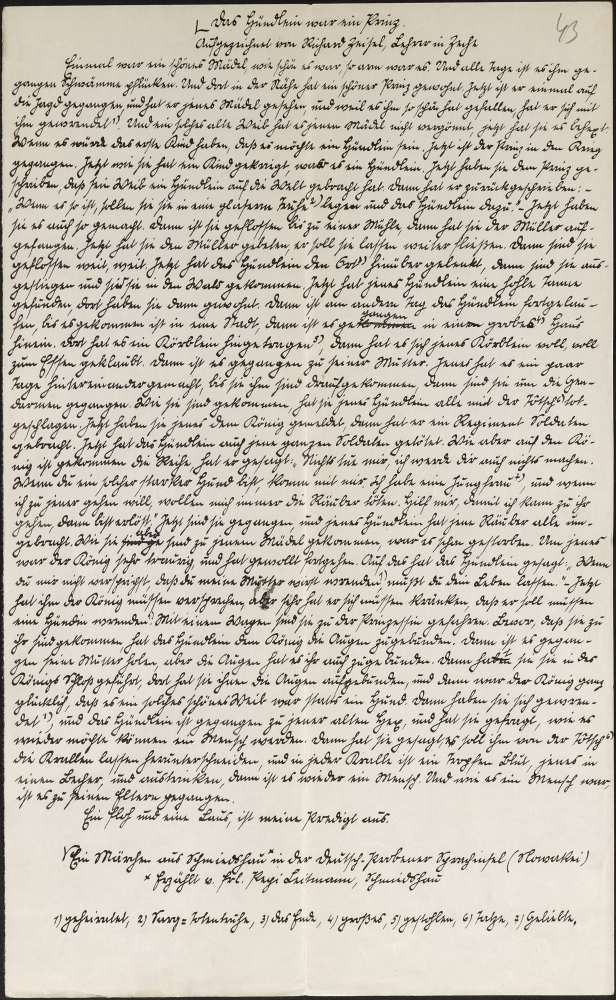 43
Das Hündlein war ein Prinz.
Aufgezeichnet von Richard Zeisel, Lehrer in Zeche
Einmal war ein schönes Mädel, wie schön es war, so arm war es. Und alle Tage ist es ihm ge-
gangen Schwämme pflücken. Und dort in der Nähe hat ein schöner Prinz gewohnt. Jetzt ist er einmal auf
die Jagd gegangen und hat er jenes Mädel gesehen, und weil es ihm so schön hat gefallen, hat er sich mit
ihm geweendet¹⁾. Und ein solches altes Weib hat es jenem Mädel nicht vergönnt, jetzt hat sie es behext
Wenn es würde das erste Kind haben, daß es möchte ein Hündlein sein. Jetzt ist der Prinz in den Krieg
gegangen. Jetzt wie sie hat ein Kind gekriegt, war es ein Hündlein. Jetzt haben sie dem Prinz ge-
schrieben, daß sein Weib ein Hündlein auf die Welt gebracht hat. Dann hat er zurückgeschrieben: -
„Wenn es so ist, sollen sie sie in eine gläserne Truhe²⁾ legen und das Hündlein dazu." - Jetzt haben
sie es auch so gemacht. Dann ist sie geflossen bis zu einer Mühle, dann hat sie der Müller auf-
gefangen. Jetzt hat sie den Müller gebeten, er soll sie lassen weiter fließen. Dann sind sie
geflossen weit, weit. Jetzt hat das Hündlein den Ort³⁾ hinüber gelenkt, dann sind sie aus-
gestiegen und sind sie in den Wald gekommen. Jetzt hat jenes Hündlein eine hohle Tanne
gefunden, dort haben sie dann gewohnt. Dann ist am andern Tag das Hündlein fortgelau-
fen, bis es gekommen ist in eine Stadt, dann ist es gegangen in ein großes⁴⁾ Haus
hinein. Dort hat es ein Körblein hinge tragen⁵⁾, dann hat es sich jenes Körblein voll, voll
zum Essen geklaubt. Dann ist es gegangen zu seiner Mutter. Jenes hat es ein paar
Tage hintereinander gemacht, bis sie ihm sind draufgekommen, dann sind sie um die Gen-
darmen gegangen. Wie sie sind gekommen, hat sie jenes Hündlein alle mit der Totsch⁶⁾ tot-
geschlagen. Jetzt haben sie jenes dem König gemeldet, dann hat er ein Regiment Soldaten
gebracht. Jetzt hat das Hündlein auch jene ganzen Soldaten getötet. Wie aber auf den Kö-
nig ist gekommen die Reihe, hat er gesagt: „Nichts tue mir, ich werde dir auch nichts machen.
Wenn du ein solcher starker Hund bist, komm mit mir. Ich habe eine Jungfrau⁷⁾, und wenn
ich zu jener gehen will, wollen mich immer die Räuber töten. Hilf mir, damit ich kann zu ihr
gehen, dann bist erlöst." Jetzt sind sie gegangen, und jenes Hündlein hat jene Räuber alle um-
gebracht. Wie sie aber sind zu jenem Mädel gekommen, war es schon gestorben. Um jenes
war der König sehr traurig, und hat gewollt fortgehen. Auf das hat das Hündlein gesagt: „Wenn
du mir nicht versprichst, daß du meine Mutter wirst weenden¹⁾, mußt du dein Leben lassen." - Jetzt
hat ihm der König müssen versprechen, aber sehr hat er sich müssen kränken, daß er soll müssen
eine Hündin weenden¹⁾. Mit einem Wagen sind sie zu der Prinzessin gefahren. Bevor, daß sie zu
ihr sind gekommen, hat das Hündlein dem König die Augen zugebunden. Dann ist es gegan-
gen seine Mutter holen, aber die Augen hat es ihr auch zugebunden. Dann haben sie sie in des
Königs Schloß geführt, dort hat sie ihnen die Augen aufgebunden, und dann war der König ganz
glücklich, daß es ein solches schönes Weib war statts ein Hund. Dann haben sie sich geween-
det¹⁾, und das Hündlein ist gegangen zu jener alten Hex, und hat sie gefragt, wie es
wieder möchte können ein Mensch werden. Dann hat sie gesagt, es soll ihm von der Totsch⁶⁾
die Krallen lassen herunterschneiden, und in jeder Kralle ist ein Tropfen Blut, jenes in
einen Becher, und austrinken, dann ist es wieder ein Mensch. Und wie es ein Mensch war,
ist es zu seinen Eltern gegangen.
Ein Floh und eine Laus, ist meine Predigt aus.
Ein Märchen aus Schmiedshau* in der Deutsch-Probener Sprachinsel (Slowakei)
* Erzählt v. Frl. Pepi Leitmann, Schmiedshau
1) geheiratet, 2) Sarg = Totentruhe, 3) das Ende, 4) großes, 5) gestohlen, 6) Tatze, 7) Geliebte.